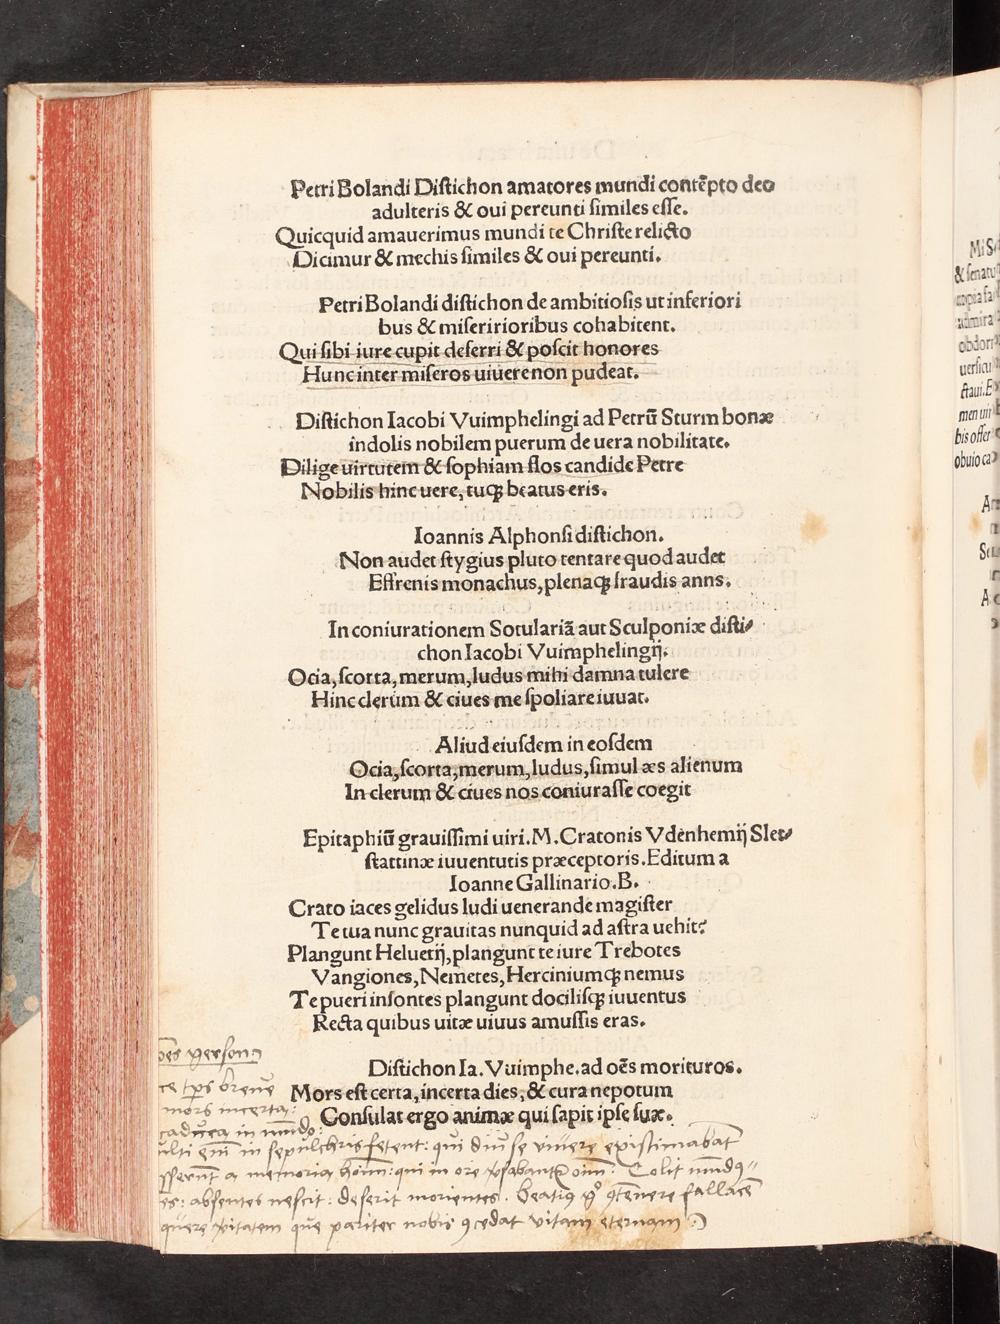 Petri Bolandi Distichon amatores mundi contēpto deo
adulteris & oui pereunti similes esse.
Quicquid amauerimus mundi te Christe relicto
Dicimur & mechis similes & oui pereunti.
Petri Bolandi distichon de ambitiosis ut inferiori
bus & miseririoribus cohabitent.
Qui sibi iure cupit deferri & poscit honores
Hunc inter miseros uiuere non pudeat.
Distichon Iacobi Vuimphelingi ad Petrū Sturm bonæ
indolis nobilem puerum de uera nobilitate.
Dilige uirtutem & sophiam flos candide Petre
Nobilis hinc uere, tuqꝫ beatus eris.
Ioannis Alphonsi distichon.
Non audet stygius pluto tentare quod audet
Effrenis monachus, plenaqꝫ fraudis anns.
In coniurationem Sotulariā aut Sculponiæ disti⸗
chon Iacobi Vuimphelingij.
Ocia, scorta, merum, ludus mihi damna tulere
Hinc clerum & ciues me spoliare iuuat.
Aliud eiusdem in eosdem
Ocia, scorta, merum, ludus, simul æs alienum
In clerum & ciues nos coniurasse coegit
Epitaphiū grauissimi uiri. M. Cratonis Vdenhemij Slet⸗
stattinæ iuuentutis præceptoris. Editum a
Ioanne Gallinario. B.
Crato iaces gelidus ludi uenerande magister
Te tua nunc grauitas nunquid ad astra uehit?
Plangunt Heluetij, plangunt te iure Trebotes
Vangiones, Nemetes, Herciniumqꝫ nemus
Te pueri insontes plangunt docilisqꝫ iuuentus
Recta quibus uitæ uiuus amussis eras.
Distichon Ia. Vuimphe. ad oēs morituros.
Mors est certa, incerta dies, & cura nepotum
Consulat ergo animæ qui sapit ipse suæ.
tps breue
mors incerta:
in mūdo:
in sepulchris fetent: qui diu se viuere epistimabāt
a memoria: qui in ore
absentes nescit: deserit morientes. fallacē
que pariter nobis vitam eternam